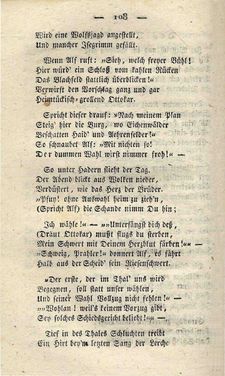 — 108 —
Wird eine Wolfsjagd angestellt,
Und mancher Isegrimm gefällt.
Wenn Alf ruft: "Sieh, welch freyer Bühl!
Hier würd' ein Schloß vom kahlen Rücken
Das Blachfeld stattlich überblicken!"
Verwirft den Vorschlag ganz und gar
Heimtückisch-grollend Ottokar.
Spricht dieser drauf: "Nach meinem Plan
Steig' hier die Burg, wo Eichenwälder
Beschatten Haid und Aehrenfelder!"
So schnaubet Alf: "Mit nichten so!
Der dummen Wahl wirst nimmer froh!" —
So unter Hadern flieht der Tag.
Der Abend blickt aus Wolken nieder,
Verdüstert, wie das Herz der Brüder.
"Pfuy! ohne Auswahl heim zu zieh'n,
(Spricht Alf) die Schande nimm Du hin;
Ich wähle!" — ""Unterfängst dich deß,
(Draut Ottokar) mußt flugs du sterben,
Mein Schwert mit Deinem Herzblut färben!"" —
"Schweig, Prahler!" donnert Alf, es fährt
Halb aus der Scheid' sein Riesenschwert.
"Der erste, der im Thal' uns wird
Begegnen, soll statt unser wählen,
Und seiner Wahl Vollzug nicht fehlen!" —
""Wohlan! weil's keinem Vorzug gibt,
So solches Schiedsgericht beliebt!"" —
Tief in des Thales Schluchten treibt
Ein Hirt bey'm letzten Sang der Lerche